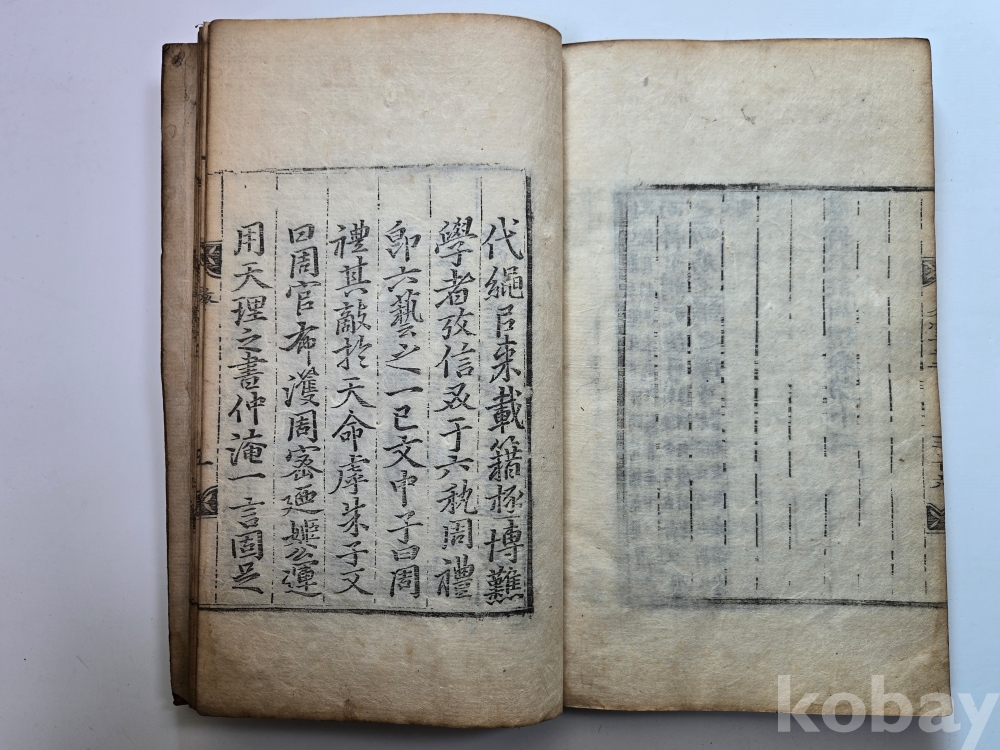 代繩㠯來載籍極博難
學者攷信及于六籍周禮
郎六藝之一已文中子曰周
禮其敵於天命虖朱子又
曰周官布濩周密廼姬公運
用天理之書仲淹一言固足
kobay